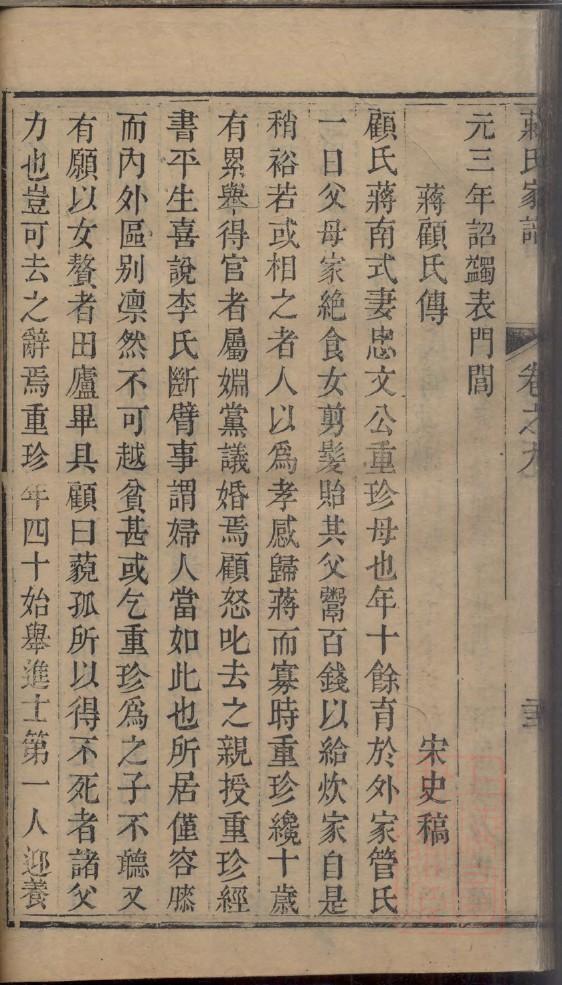 蔣氏家譜 卷之九
元三年詔蠲表門閭
蔣顧氏傳 宋史稿
顧氏蔣南式妻忠文公重珍母也年十餘育於外家管氏
一日父母家絶食女剪髮貽其父鬻百錢以給炊家自是
稍裕若或相之者人以爲孝感歸蔣而寡時重珍纔十歲
有累舉得官者屬婣黨議婚焉顧怒叱去之親授重珍經
書平生喜說李氏斷臂事謂婦人當如此也所居僅容膝
而內外區别凛然不可越貧甚或乞重珍爲之子不聽又
有願以女贅者田廬畢具顧曰藐孤所以得不死者諸父
力也豈可去之辭焉重珍年四十始舉進士第一人迎養